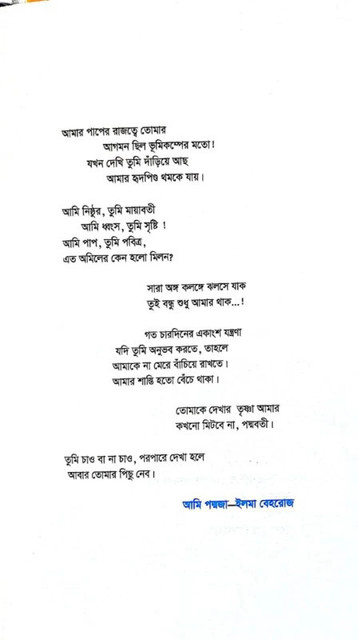 আমার পাপের রাজত্বে তোমার
আগমন ছিল ভূমিকম্পের মতো!
যখন দেখি তুমি দাঁড়িয়ে আছ
আমার হৃদপিণ্ড থমকে যায়।
আমি নিষ্ঠুর, তুমি মায়াবতী
আমি ধ্বংস, তুমি সৃষ্টি !
আমি পাপ, তুমি পবিত্র,
এত অমিলের কেন হলো মিলন?
সারা অঙ্গ কলঙ্কে ঝলসে যাক
তুই বন্ধু শুধু আমার থাক...!
গত চারদিনের একাংশ যন্ত্রণা
যদি তুমি অনুভব করতে, তাহলে
আমাকে না মেরে বাঁচিয়ে রাখতে।
আমার শাস্তি হতো বেঁচে থাকা।
তোমাকে দেখার তৃষ্ণা আমার
কখনো মিটবে না, পদ্মবতী।
তুমি চাও বা না চাও, পরপারে দেখা হলে
আবার তোমার পিছু নেব।
আমি পদ্মজা—ইলমা বেহরোজ